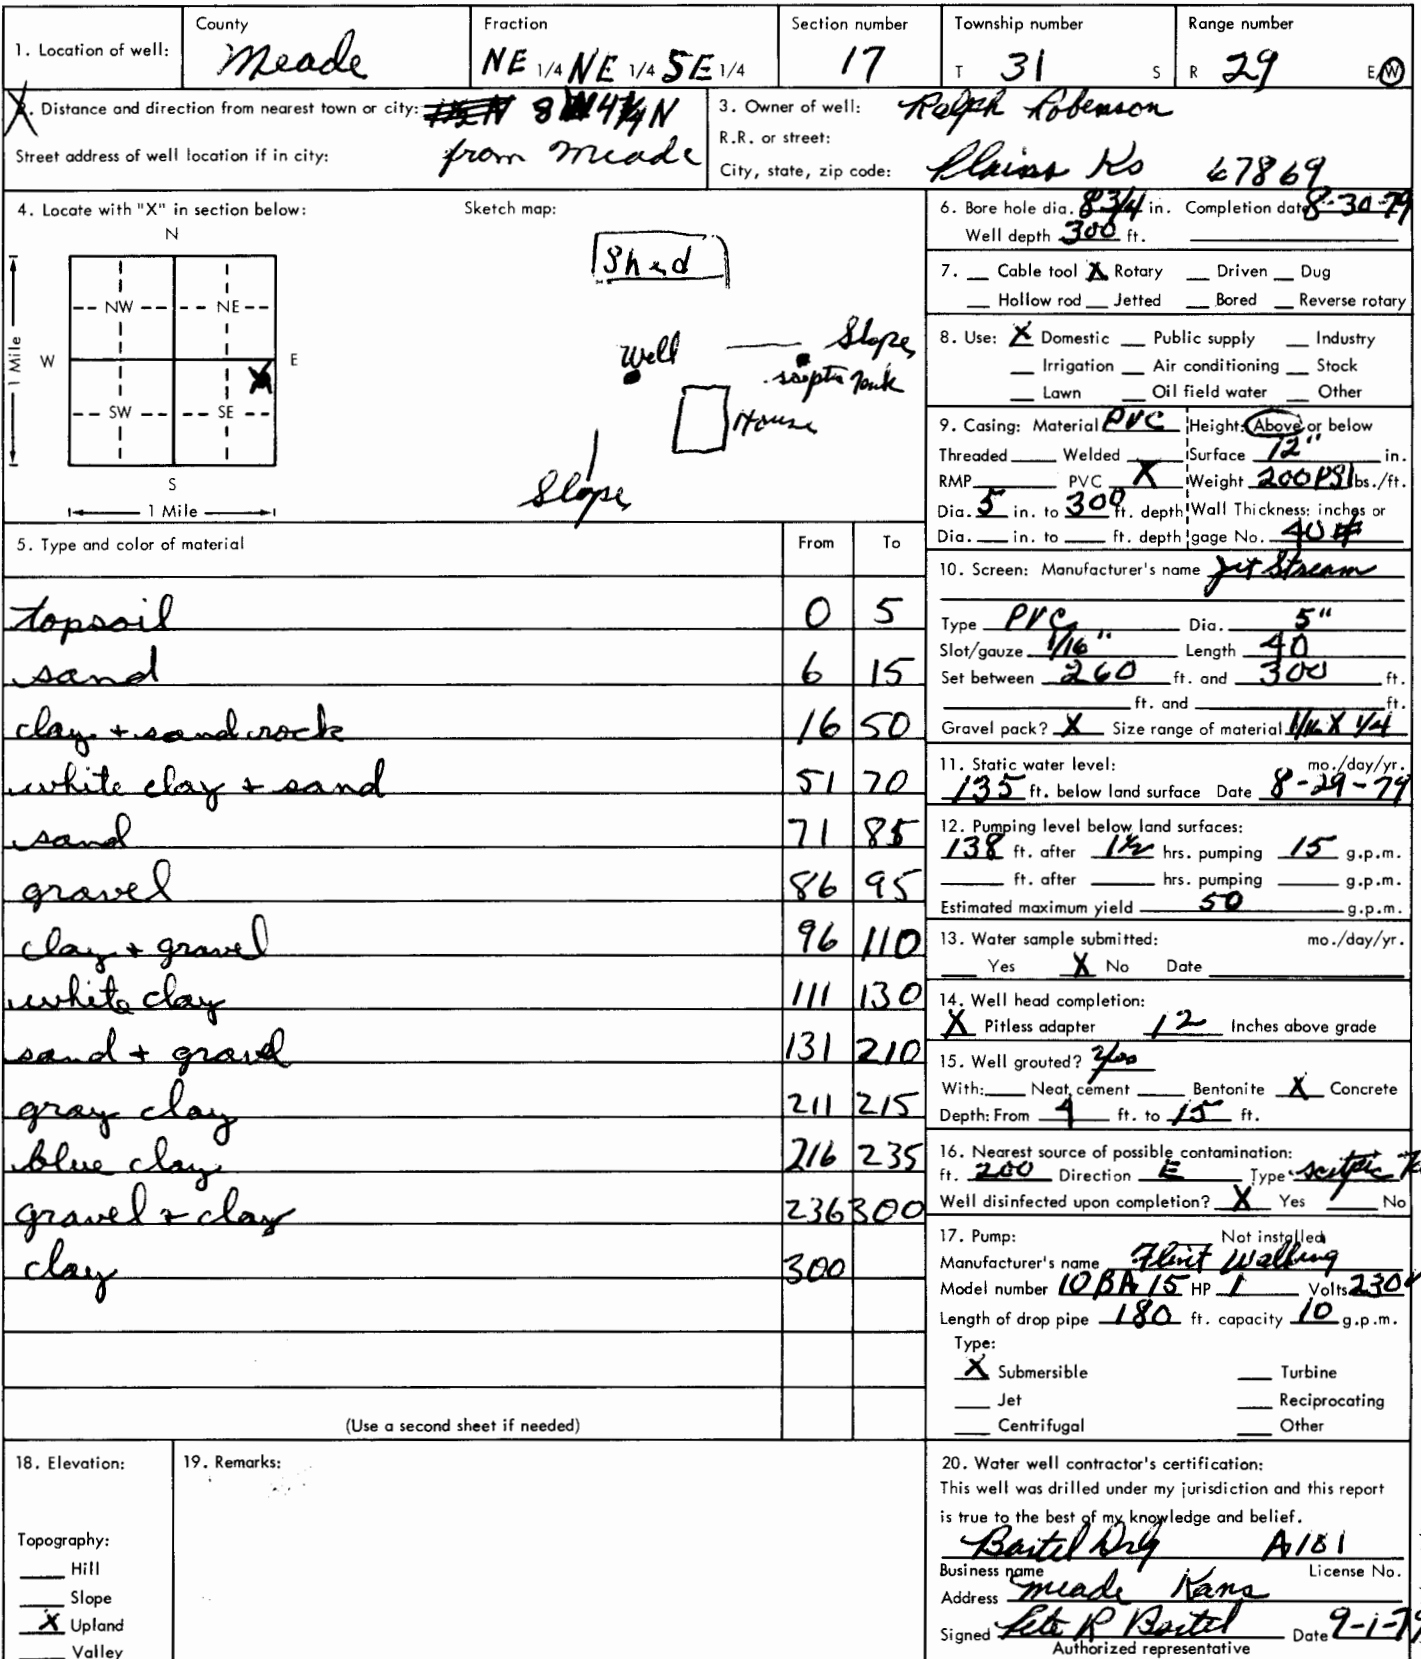 County Fraction Section number Township number Range number
1. Location of well: Meade NE 1/4 NE 1/4 SE 1/4 17 T 31 S R 29 E/W
2. Distance and direction from nearest town or city: 8 W 4 1/4 N
Street address of well location if in city: from Meade
3. Owner of well: Ralph Robenson
R.R. or street:
City, state, zip code: Plains Ks 67869
4. Locate with "X" in section below: Sketch map:
N
NW NE
W E
X
SW SE
S
1 Mile
1 Mile
Shed
Well Slope
sceptic Tank
House
Slope
5. Type and color of material From To
topsoil 0 5
sand 6 15
clay + sand rock 16 50
white clay + sand 51 70
sand 71 85
gravel 86 95
clay + gravel 96 110
white clay 111 130
sand + gravel 131 210
gray clay 211 215
blue clay 216 235
gravel + clay 236 300
clay 300
(Use a second sheet if needed)
6. Bore hole dia. 8 3/4 in. Completion date 8-30-79
Well depth 300 ft.
7. __ Cable tool X Rotary __ Driven __ Dug
__ Hollow rod __ Jetted __ Bored __ Reverse rotary
8. Use: X Domestic __ Public supply __ Industry
__ Irrigation __ Air conditioning __ Stock
__ Lawn __ Oil field water __ Other
9. Casing: Material PVC Height: Above or below
Threaded ____ Welded ____ Surface 12" in.
RMP ____ PVC X Weight 200 PSI lbs./ft.
Dia. 5 in. to 300 ft. depth Wall Thickness: inches or
Dia. __ in. to __ ft. depth gage No. 40 #
10. Screen: Manufacturer's name Jet Stream
Type PVC Dia. 5"
Slot/gauze 1/16" Length 40
Set between 260 ft. and 300 ft.
____ ft. and ____ ft.
Gravel pack? X Size range of material 1/16 X 1/4
11. Static water level: mo./day/yr.
135 ft. below land surface Date 8-29-79
12. Pumping level below land surfaces:
138 ft. after 1 1/2 hrs. pumping 15 g.p.m.
____ ft. after ____ hrs. pumping ____ g.p.m.
Estimated maximum yield 50 g.p.m.
13. Water sample submitted: mo./day/yr.
__ Yes X No Date ____
14. Well head completion:
X Pitless adapter 12 Inches above grade
15. Well grouted? Yes
With: __ Neat cement __ Bentonite X Concrete
Depth: From 4 ft. to 15 ft.
16. Nearest source of possible contamination:
ft. 200 Direction E Type
Well disinfected upon completion? X Yes __ No
17. Pump: __ Not installed
Manufacturer's name Flint Walling
Model number 10BA15 HP 1 Volts 230V
Length of drop pipe 180 ft. capacity 10 g.p.m.
Type:
X Submersible __ Turbine
__ Jet __ Reciprocating
__ Centrifugal __ Other
18. Elevation: 19. Remarks:
Topography:
__ Hill
__ Slope
X Upland
__ Valley
20. Water well contractor's certification:
This well was drilled under my jurisdiction and this report
is true to the best of my knowledge and belief.
Bartel Drlg A181
Business name License No.
Address Meade Kans
Signed Pete R Bartel Date 9-1-79
Authorized representative